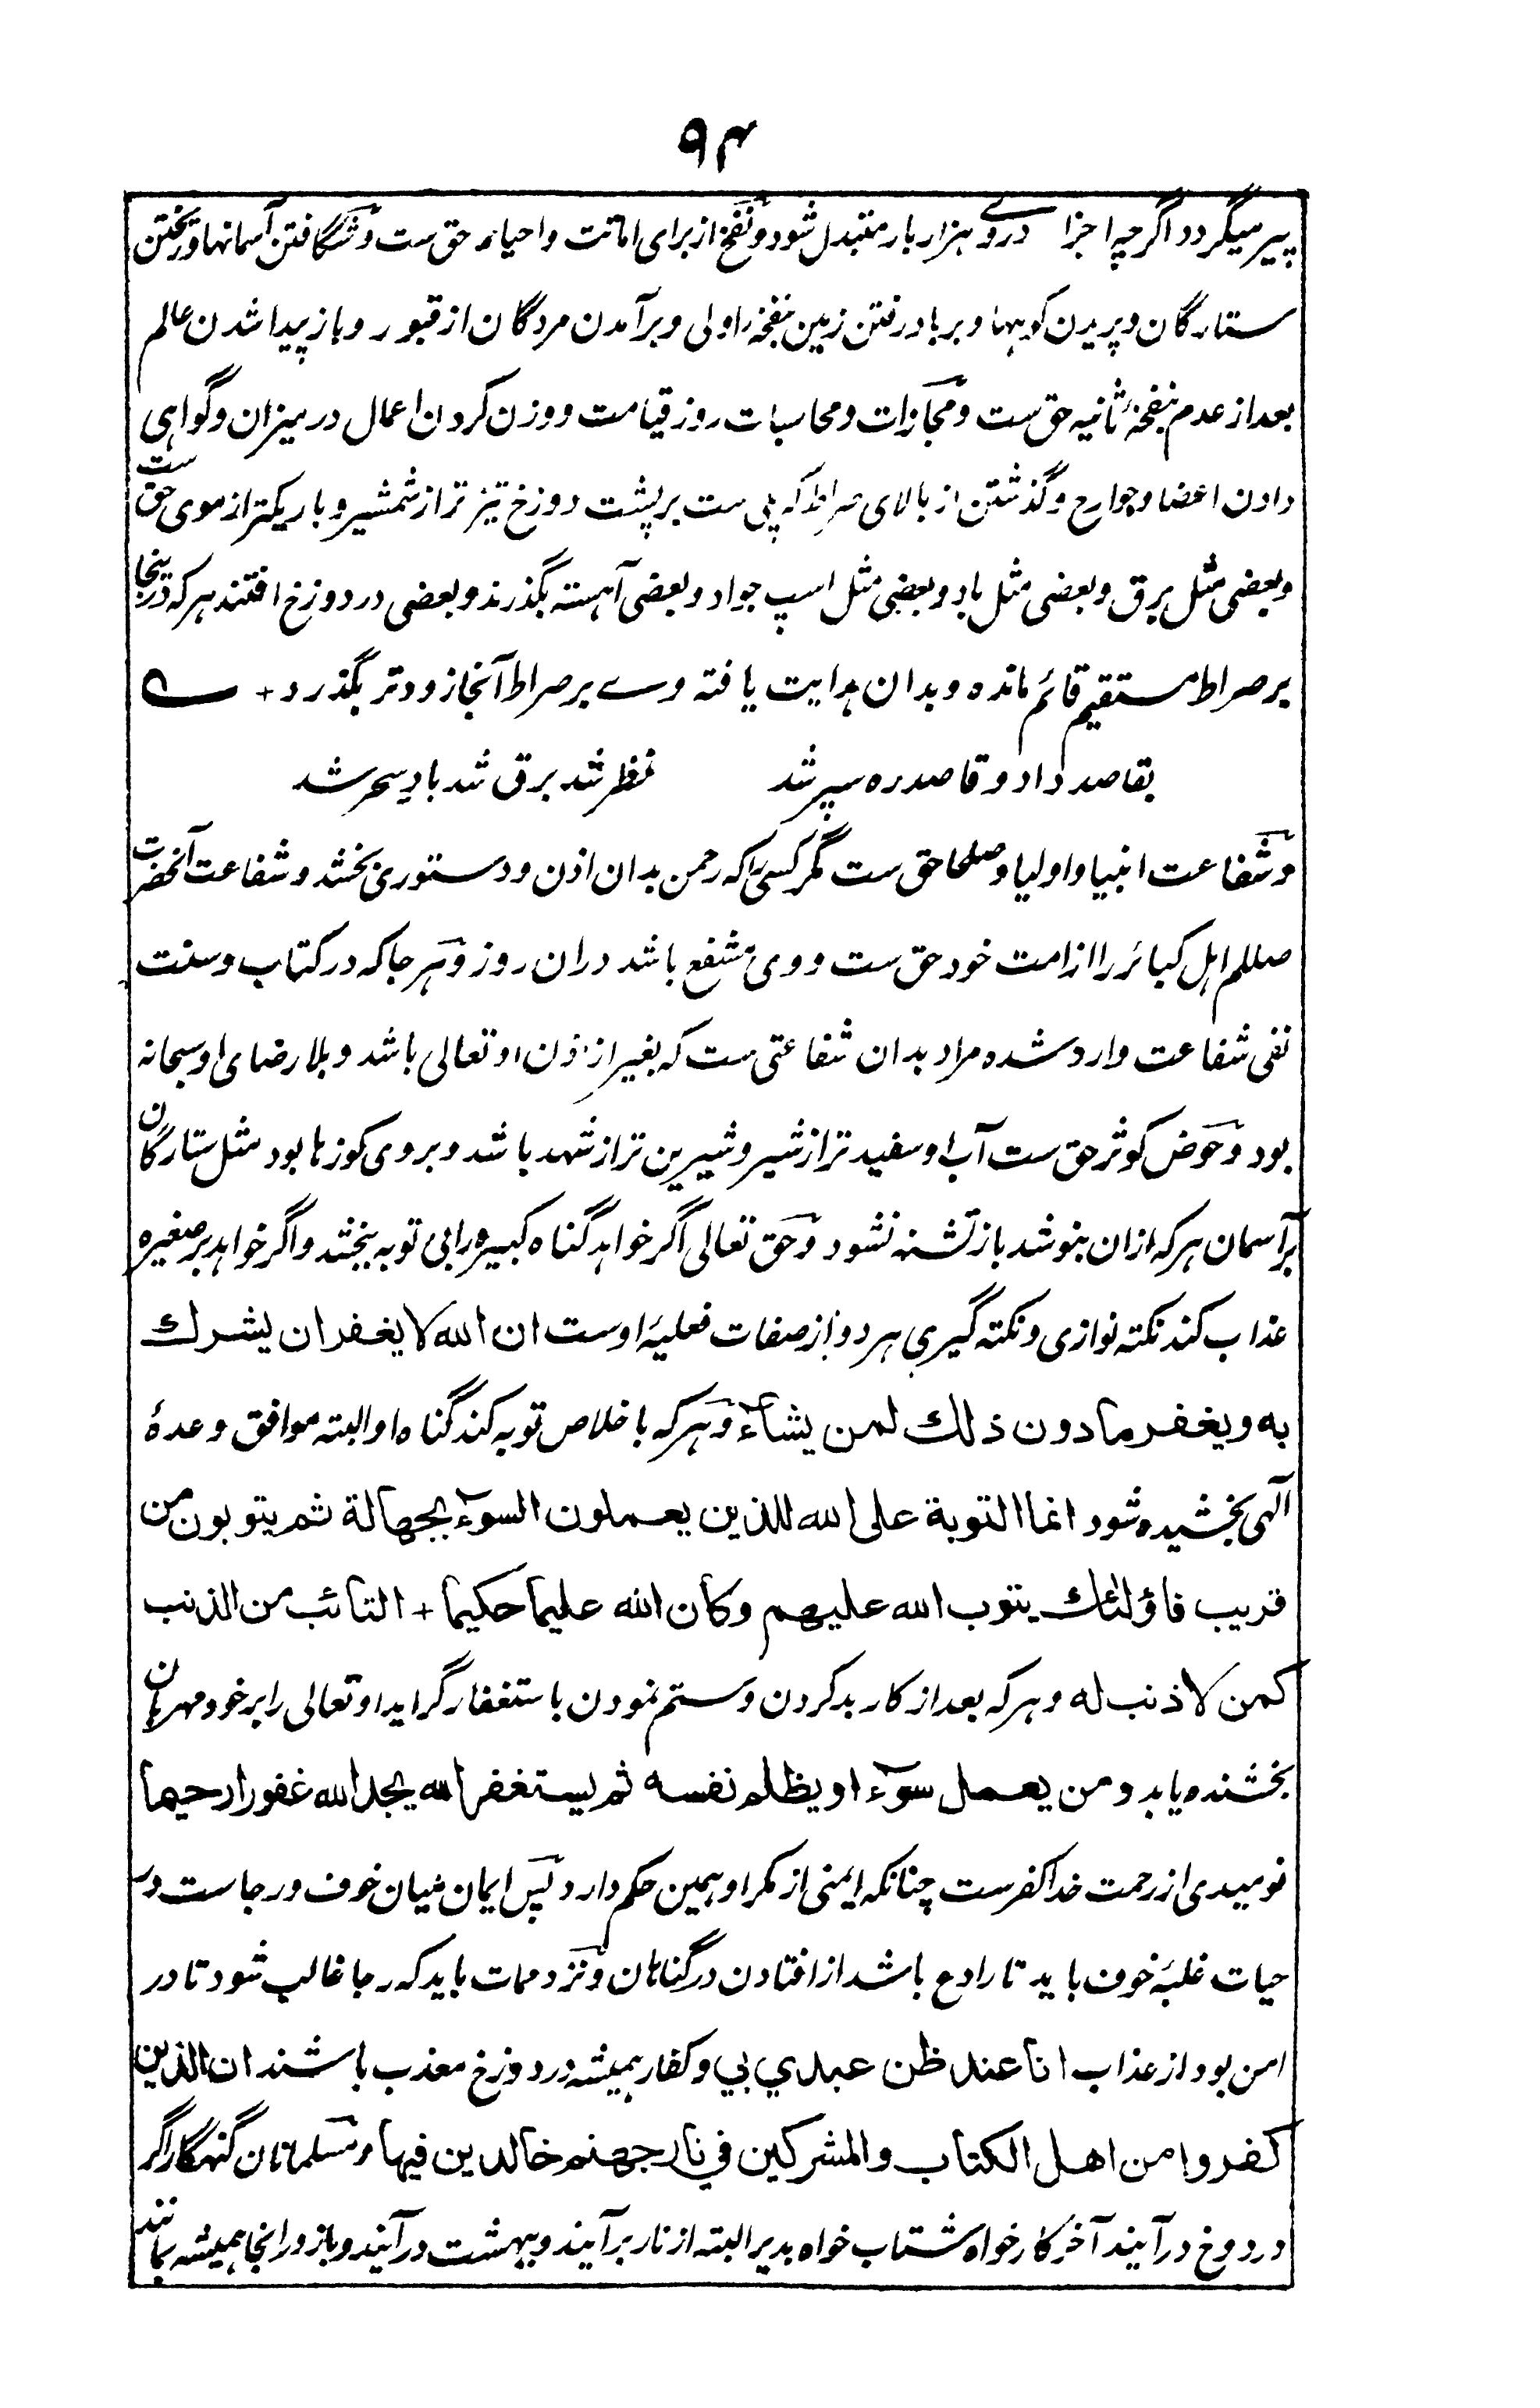 ۹۴
پیر میگردد اگرچه اجزاے درو هزار بار متبدل شود و نفخ از برای اماتت و احیاء حق ست و شگافتن آسمانها و ریختن
ستارگان و پریدن کوهها و بر باد رفتن زمین بنفخهٔ اولی و برآمدن مردگان از قبور و باز پیدا شدن عالم
بعد از عدم بنفخهٔ ثانیه حق ست و مجازات و محاسبات روز قیامت و وزن کردن اعمال در میزان و گواهی
دادن اعضا و جوارح و گذشتن از بالای صراط که پلی ست بر پشت دوزخ تیز تر از شمشیر و باریکتر از موی حق ست
و بعضی مثل برق و بعضی مثل باد و بعضی مثل اسپ جواد و بعضی آهسته بگذرند و بعضی در دوزخ افتند هر که درینجا
بر صراط مستقیم قائم مانده و بدان هدایت یافته وے بر صراط آنجا زودتر بگذرد +
بقاصد داد و قاصد ره سپر شد نظر شد برق شد باد سحر شد
و شفاعت انبیا و اولیا و صلحا حق ست مگر کسی را که رحمن بدان اذن و دستوری بخشد و شفاعت آنحضرت
صللم اهل کبائر را از امت خود حق ست و وی مشفع باشد دران روز و هر جا که در کتاب و سنت
نفی شفاعت وارد شده مراد بدان شفاعتی ست که بغیر از اذن او تعالی باشد و بلا رضای او سبحانه
بود و حوض کوثر حق ست آب او سفید تر از شیر و شیرین تر از شهد باشد و بروی کوزها بود مثل ستارگان
بر آسمان هر که ازان بنوشد باز تشنه نشود و حق تعالی اگر خواهد گناه کبیره را بی توبه ببخشد و اگر خواهد بر صغیره
عذاب کند نکته نوازی و نکته گیری هر دو از صفات فعلیهٔ اوست ان الله لا یغفر ان یشرك
به ویغفر ما دون ذلك لمن یشآء و هر که با خلاص توبه کند گناه او البته موافق وعدهٔ
آلهی بخشیده شود انما التوبة علی الله للذین یعملون السوٓء بجهالة ثم یتوبون من
قریب فاؤلئك یتوب الله علیهم وکان الله علیما حکیما + التائب من الذنب
کمن لا ذنب له و هر که بعد از کار بد کردن و ستم نمودن باستغفار گراید او تعالی را بر خود مهربان
بخشنده یابد ومن یعمل سوٓء او یظلم نفسه ثم یستغفر الله یجد الله غفورا رحیما
نومیدی از رحمت خدا کفرست چنانکه ایمنی از مکر او همین حکم دارد پس ایمان میان خوف و رجاست در
حیات غلبهٔ خوف باید تا رادع باشد از افتادن در گناهان و نزد ممات باید که رجا غالب شود تا در
امن بود از عذاب انا عند ظن عبدي بي و کفار همیشه در دوزخ معذب باشند ان الذین
کفروا من اهل الکتاب والمشرکین في نار جهنم خالدین فیها و مسلمانان گنهگار اگر
در دوزخ درآیند آخر کار خواه شتاب خواه بدیر البته از نار برآیند و ببهشت درآیند و باز درانجا همیشه بمانند